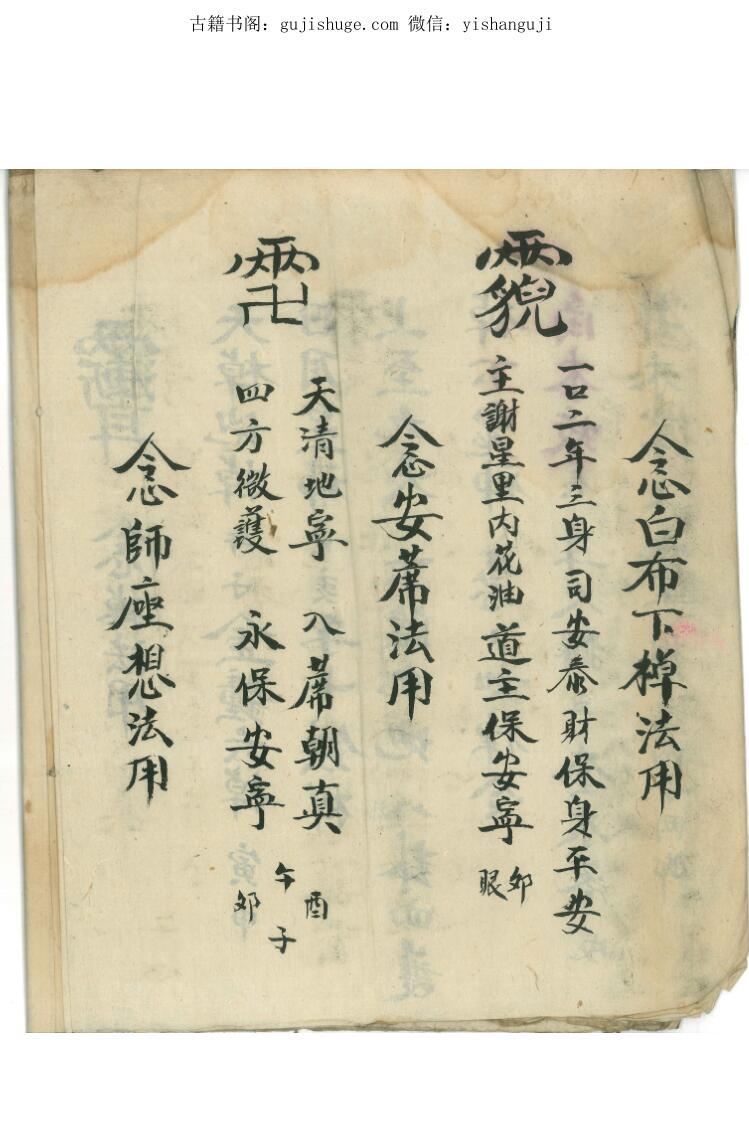 古籍书阁：gujishuge.com 微信：yishanguji
念白布下棹法用
一口二年三身司安泰財保身平安
主謝星里内花油道主保安寧 卯眼
念安蓆法用
天清地寧 入蓆朝真 酉
四方微護 永保安寧 午子卯
念師座想法用